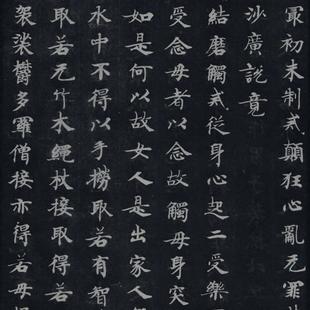 冣初未制戒顛狂心亂无罪
沙廣說竟
結磨觸戒從身心起二受樂
受念母者以念故觸母身突
如是何以故女人是出家人
水中不得以手撈取若有智
取若无竹木繩杖接取得若
袈裟欝多羅僧接亦得若母